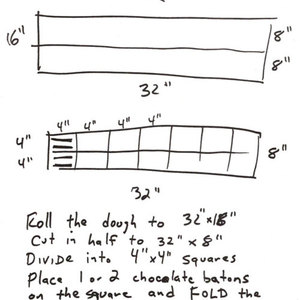 16"
8"
8"
32"
4" 4" 4" 4"
4"
4"
8"
32"
Roll the dough to 32"x16"
Cut in half to 32" x 8"
Divide into 4"x4" squares
Place 1 or 2 chocolate batons
on the square and FOLD the